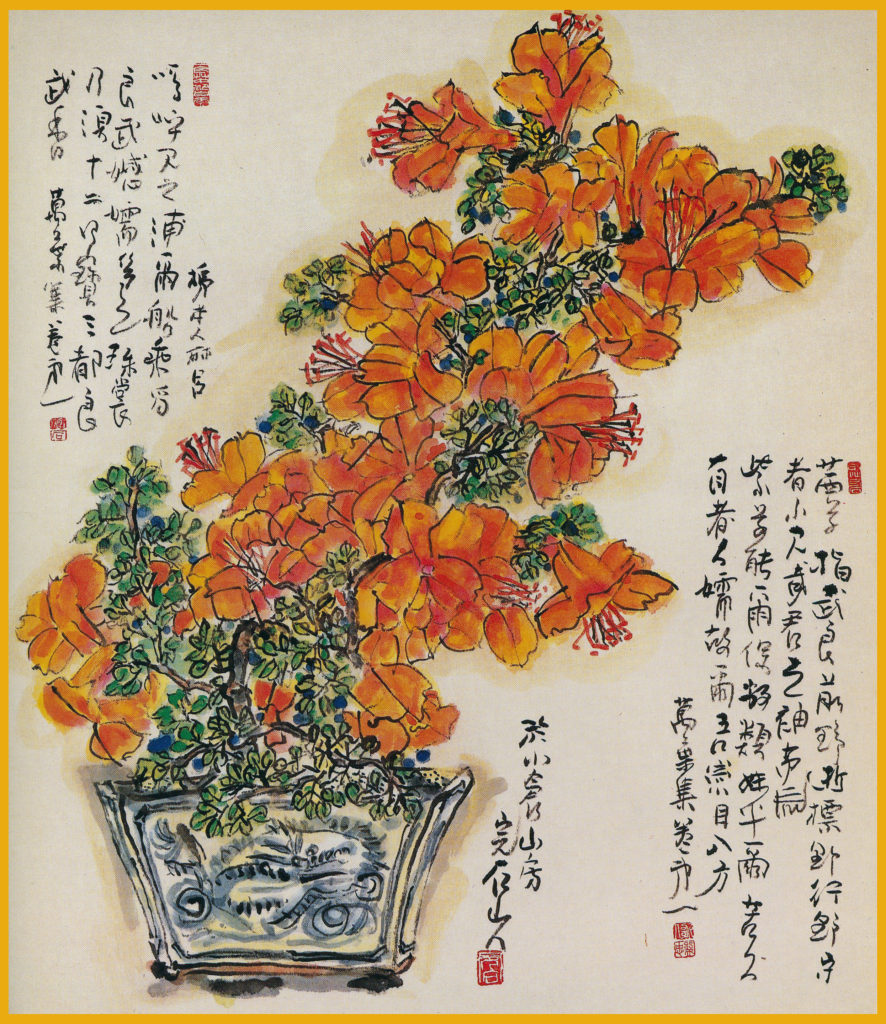 茜草指武良前野逝標野行野守
者不見哉君之袖布流
紫草能爾保敝類妹乎爾苦久
有者人嬬故爾吾戀目八方
萬葉集卷第一
山房
山人
柿本人麻呂
嗚呼見之浦爾船乘為
良武嬬等之珠裳
乃須十二四寶三都良
武香 萬葉集卷第一